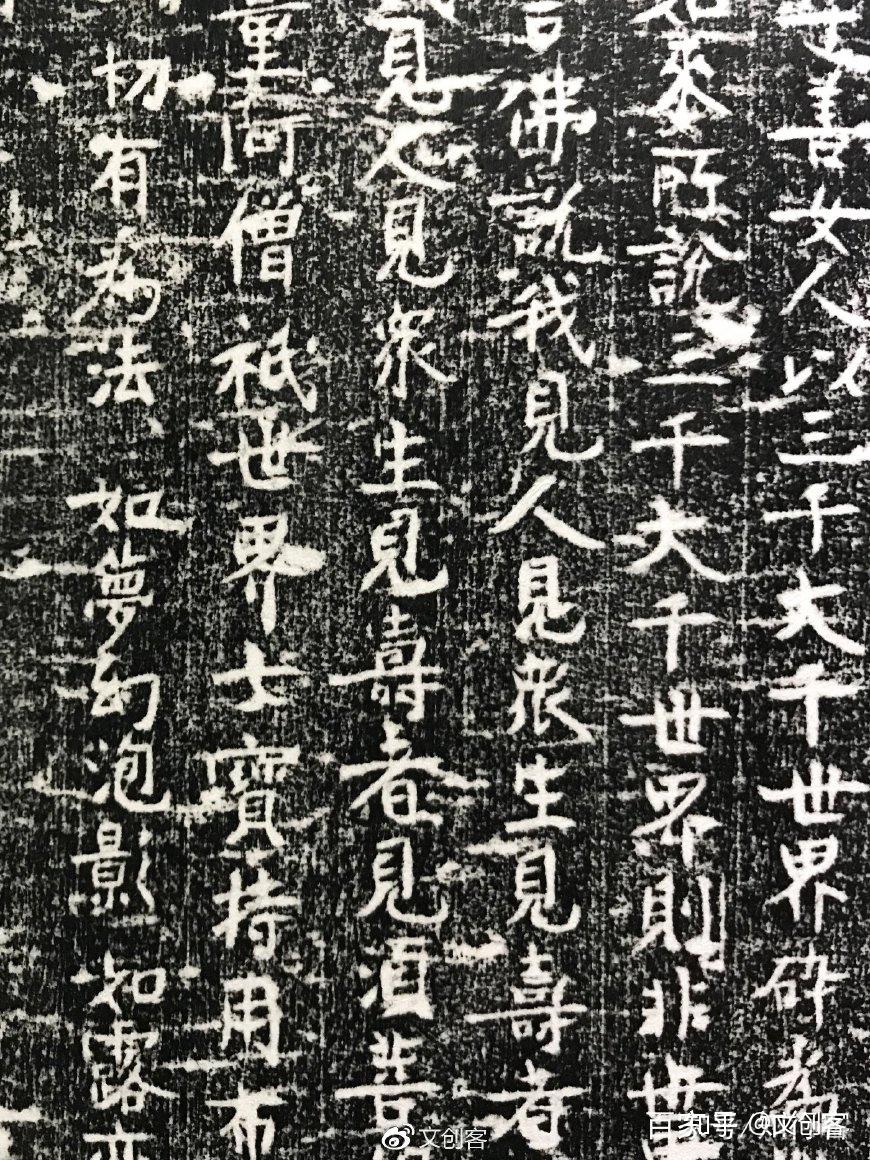 善女人以三千大千世界碎為
如来所說三千大千世界則非世
言佛說我見人見衆生見壽者
見人見衆生見壽者見湏菩
量阿僧祇世界七寶持用布
切有為法、如夢幻泡影如露亦
文创客
@文创客